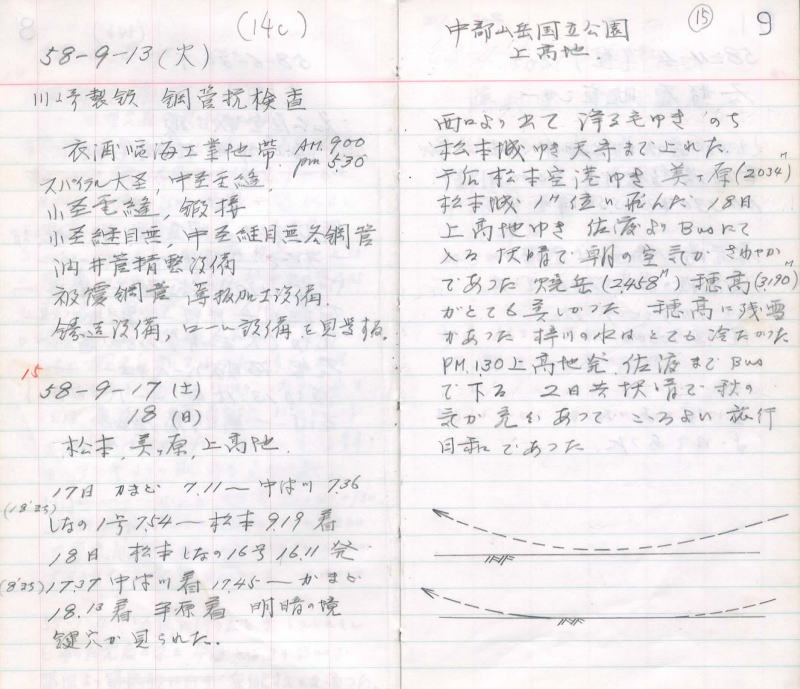 (14c)
58-9-13(火)
川予製鉄 鋼管抗検査
衣浦臨海工業地帯 AM.9.00
pm 5.30
スパイラル大径,中径電縫,
小径電縫,鍛接
小径継目無,中径継目無各鋼管
油井管精整設備
被覆鋼管 等板加工設備.
鋳造設備,ロール設備を見学する。
15
58-9-17(土)
18(日)
松本,美ヶ原,上高地.
17日 かまど 7.11〜中津川 7.36
しなの1号 7.54〜松本 9.19 着
18日 松本しなの16号 16.11 発
17.37 中津川着 17.45〜かまど
18.13着 平原着 明暗の境
鍵穴が見られた.
中部山岳国立公園
上高地.
⑮
9
西口より出て ゆき のち
松本城ゆき天守まで上れた.
午后松本空港ゆき美ヶ原(2034m)
松本城 位 飛んだ 18日
上高地ゆき 佐渡よりBusにて
入る 快晴で朝の空気がさわやか
であった 焼岳(2,458m)穂高(3,190m)
がとても美しかった 穂高に残雪
があった 梓川の水はとても冷たかった
PM.1.30上高地発.佐渡までBus
で下る 2日共快晴で秋の
気が充ちあつて こころよい旅行
日和であった